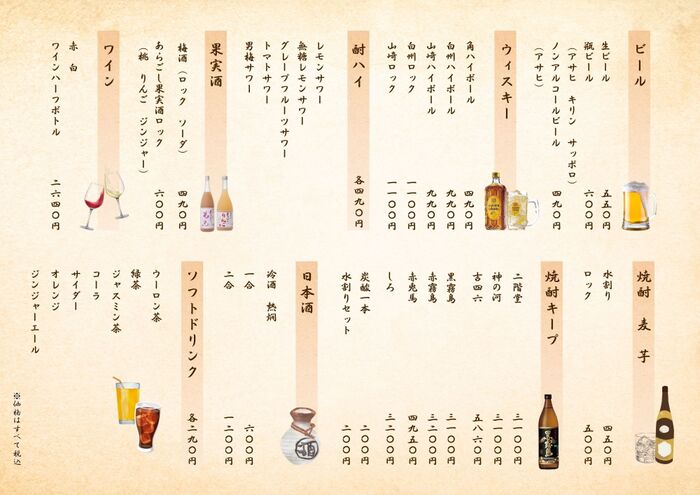 ビール
生ビール 五五〇円
瓶ビール 六〇〇円
(アサヒ キリン サッポロ)
ノンアルコールビール 四九〇円
(アサヒ)
ウィスキー
角ハイボール 四九〇円
白州ハイボール 九九〇円
山崎ハイボール 九九〇円
白州ロック 一一〇〇円
山崎ロック 一一〇〇円
酎ハイ 各四九〇円
レモンサワー
無糖レモンサワー
グレープフルーツサワー
トマトサワー
男梅サワー
果実酒
梅酒(ロック ソーダ) 四九〇円
あらごし果実酒ロック 六〇〇円
(桃 りんご ジンジャー)
ワイン
赤 白
ワインハーフボトル 二六四〇円
焼酎 麦 芋
水割り 四五〇円
ロック 五〇〇円
焼酎キープ
二階堂 三一〇〇円
神の河 三一〇〇円
吉四六 五八六〇円
黒霧島 三一〇〇円
赤霧島 三二〇〇円
赤兎馬 四九五〇円
しろ 三二〇〇円
炭酸一本 二〇〇円
水割りセット 二〇〇円
日本酒
冷酒 熱燗
一合 六〇〇円
二合 一二〇〇円
ソフトドリンク 各二九〇円
ウーロン茶
緑茶
ジャスミン茶
コーラ
サイダー
オレンジ
ジンジャーエール
※価格はすべて税込